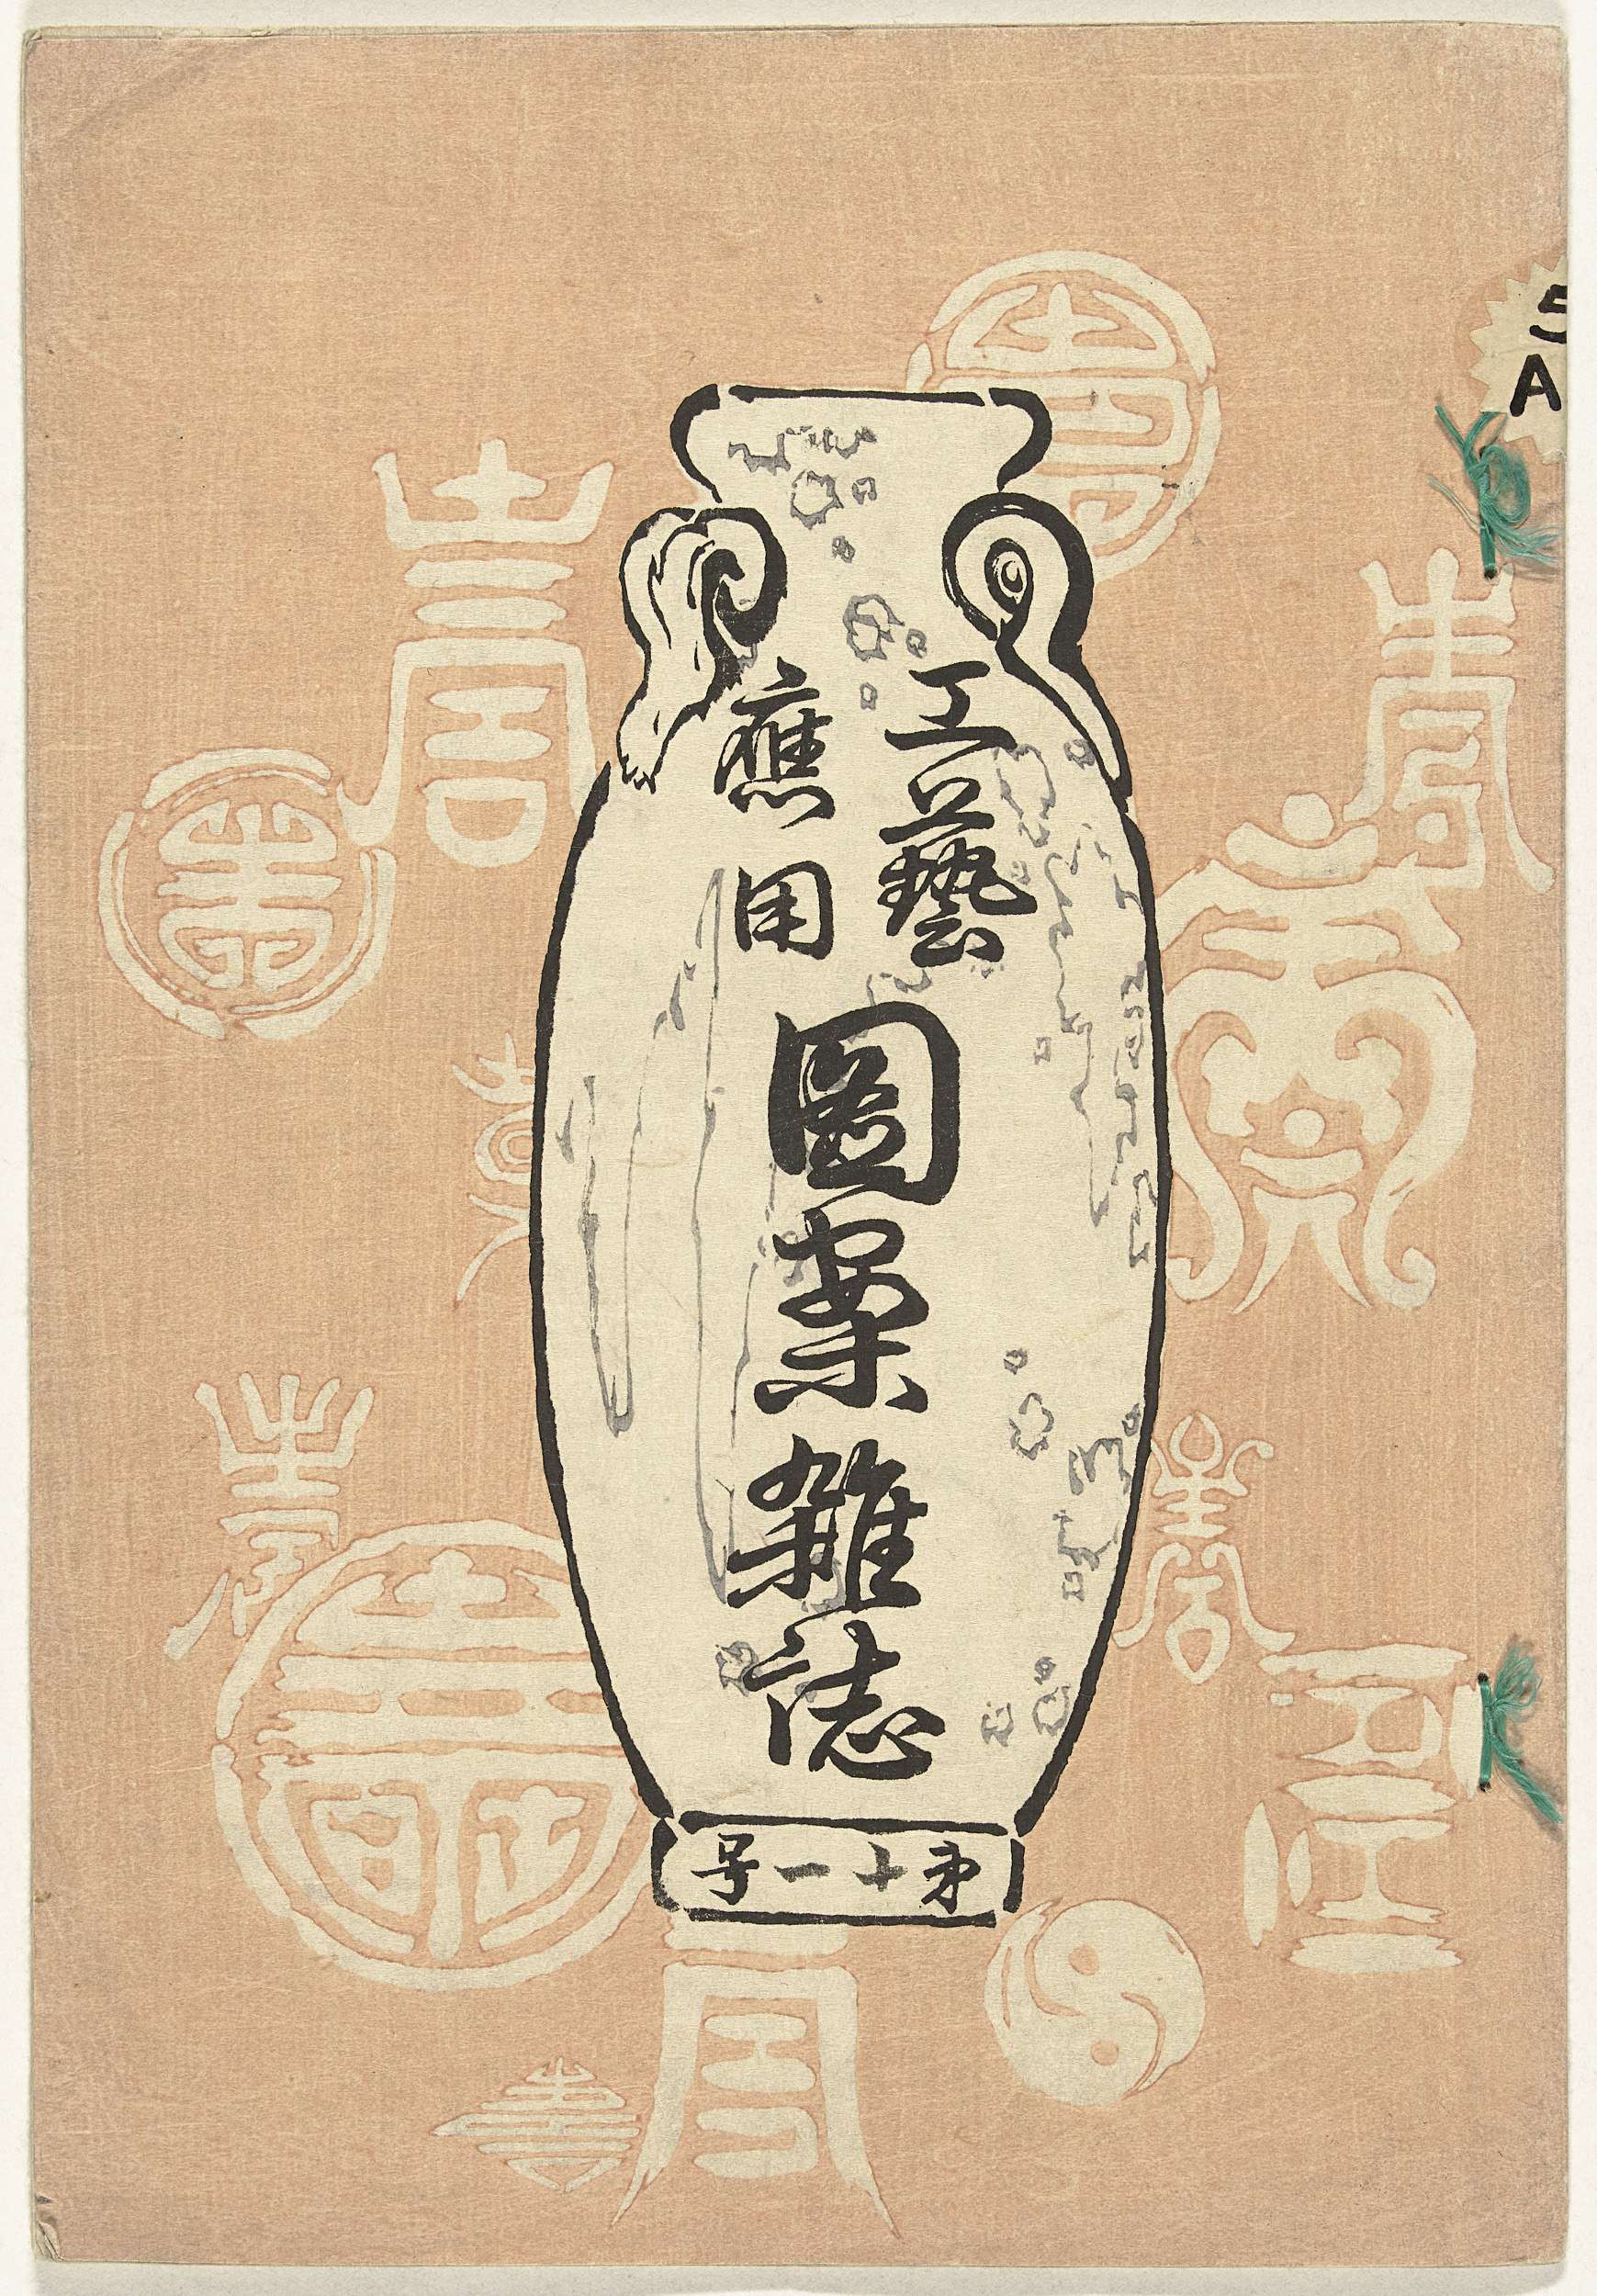 工藝
應用
圖案雜誌
第十一号
5
A